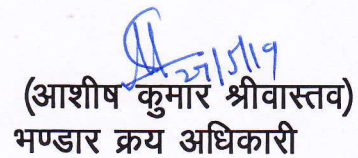 25/5/19
(आशीष कुमार श्रीवास्तव)
भण्डार क्रय अधिकारी